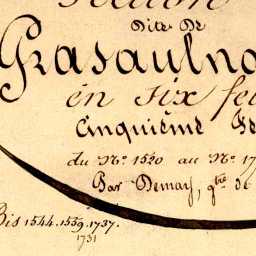 Section
Dite De
Grasaulno
en six fe
Cinquième Fe
du N° 1520 au N° 17
Par Demay, gtre de
Bis 1544.1559.1737.
1731